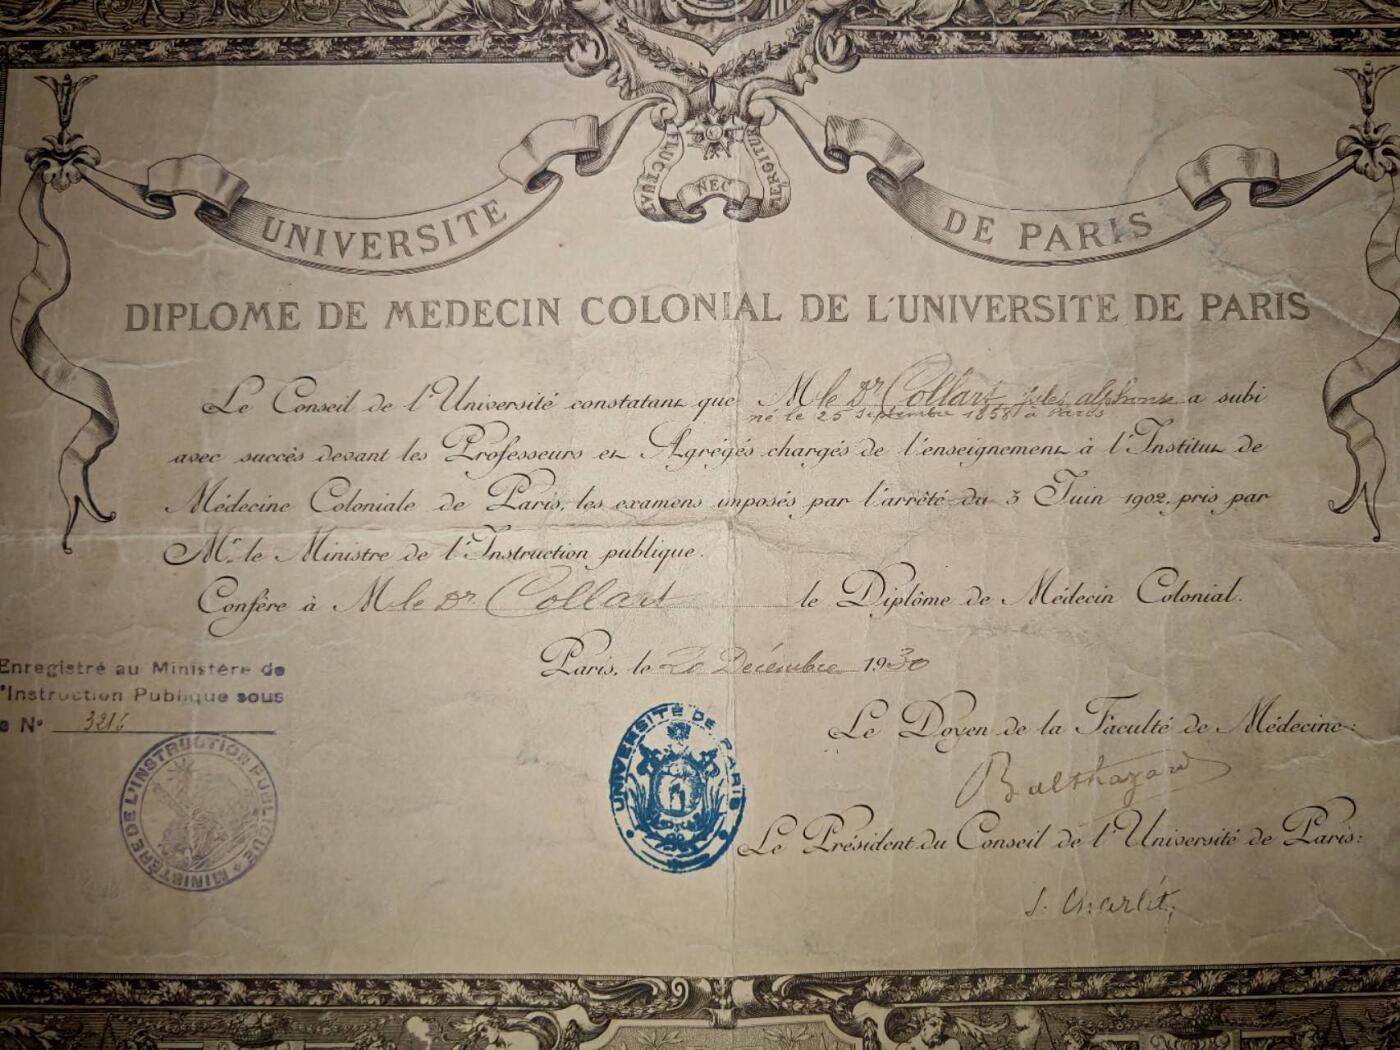 FLUCTUAT NEC MERGITUR
UNIVERSITE DE PARIS
DIPLOME DE MEDECIN COLONIAL DE L'UNIVERSITE DE PARIS
Le Conseil de l'Université constatant que M le Dr Collart jules alphonse a subi
né le 25 septembre 1858 à Paris
avec succès devant les Professeurs et Agrégés chargés de l'enseignement à l'Institut de
Médecine Coloniale de Paris, les examens imposés par l'arrêté du 3 Juin 1902, pris par
Mr. le Ministre de l'Instruction publique.
Confère à M le Dr. Collart le Diplôme de Médecin Colonial.
Paris, le 20 Décembre 1930
Enregistré au Ministère de
l'Instruction Publique sous
le No 3216
MINISTÈRE DE L'INSTRUCTION PUBLIQUE
UNIVERSITÉ DE PARIS
Le Doyen de la Faculté de Médecine:
Balthazard
Le Président du Conseil de l'Université de Paris:
S. Charléty